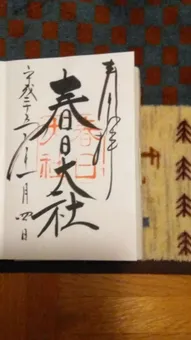 奉拝
春日大社
春日大社
平成二十五年十一月四日